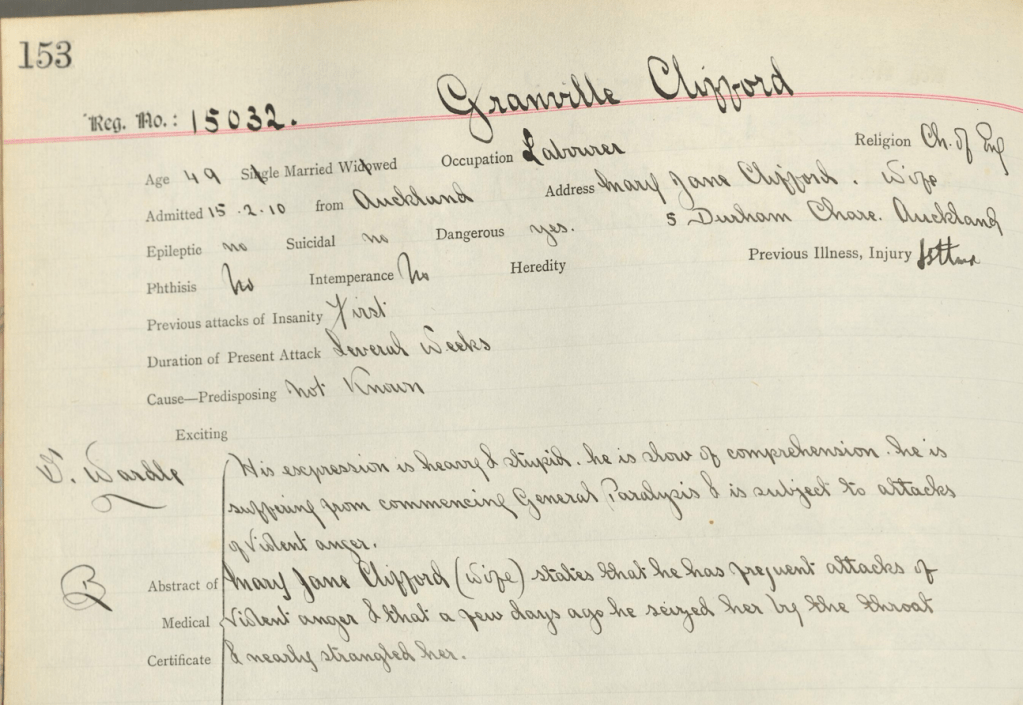 153
Granville Clifford
Reg. No.: 15032.
Age 49 Single Married Widowed Occupation Labourer Religion Ch. of Eng
Admitted 15.2.10 from Auckland Address Mary Jane Clifford. Wife
5 Durham Chare. Auckland
Epileptic no Suicidal no Dangerous yes.
Phthisis No Intemperance No Heredity Previous Illness, Injury
Previous attacks of Insanity First
Duration of Present Attack Several Weeks
Cause—Predisposing Not Known
Exciting
Wardle His expression is heavy & stupid. he is slow of comprehension. he is
suffering from commencing General Paralysis & is subject to attacks
of Violent anger.
B Abstract of Mary Jane Clifford (Wife) states that he has frequent attacks of
Medical Violent anger & that a few days ago he seized her by the throat
Certificate & nearly strangled her.